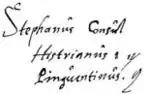 Stephanus Consul
Histrianus: y
Pinguentinus. y